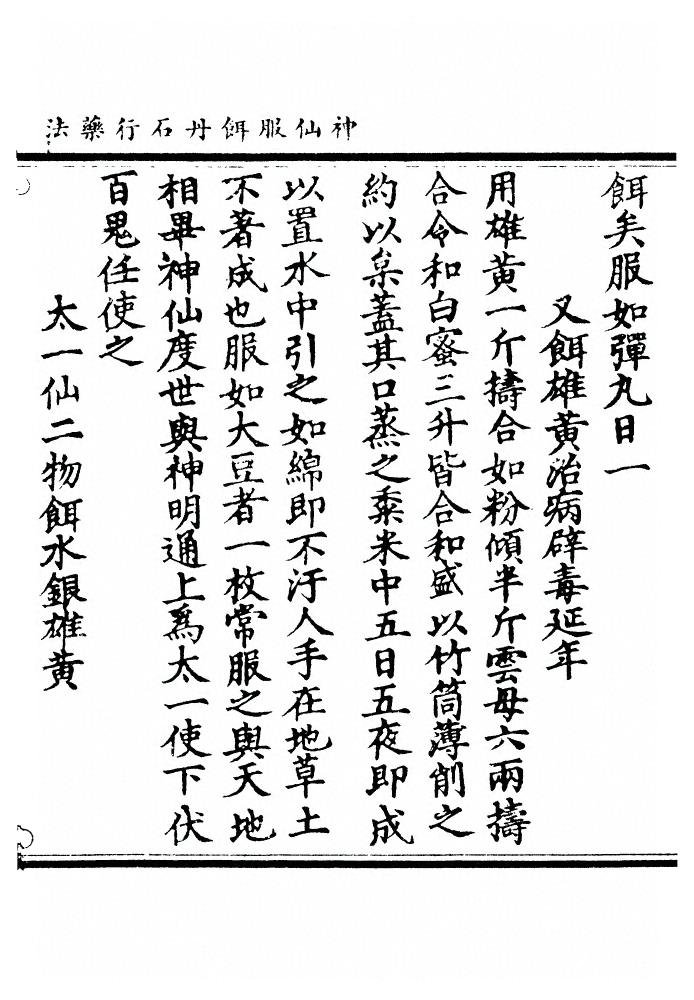 神仙服餌丹石行藥法
餌矣服如彈丸日一
又餌雄黃治病辟毒延年
用雄黃一斤擣合如粉傾半斤雲母六兩擣
合令和白蜜三升皆合和盛以竹筒薄削之
約以枲蓋其口蒸之黍米中五日五夜即成
以置水中引之如綿即不汙人手在地草土
不著成也服如大豆者一枚常服之與天地
相畢神仙度世與神明通上爲太一使下伏
百鬼任使之
太一仙二物餌水銀雄黃